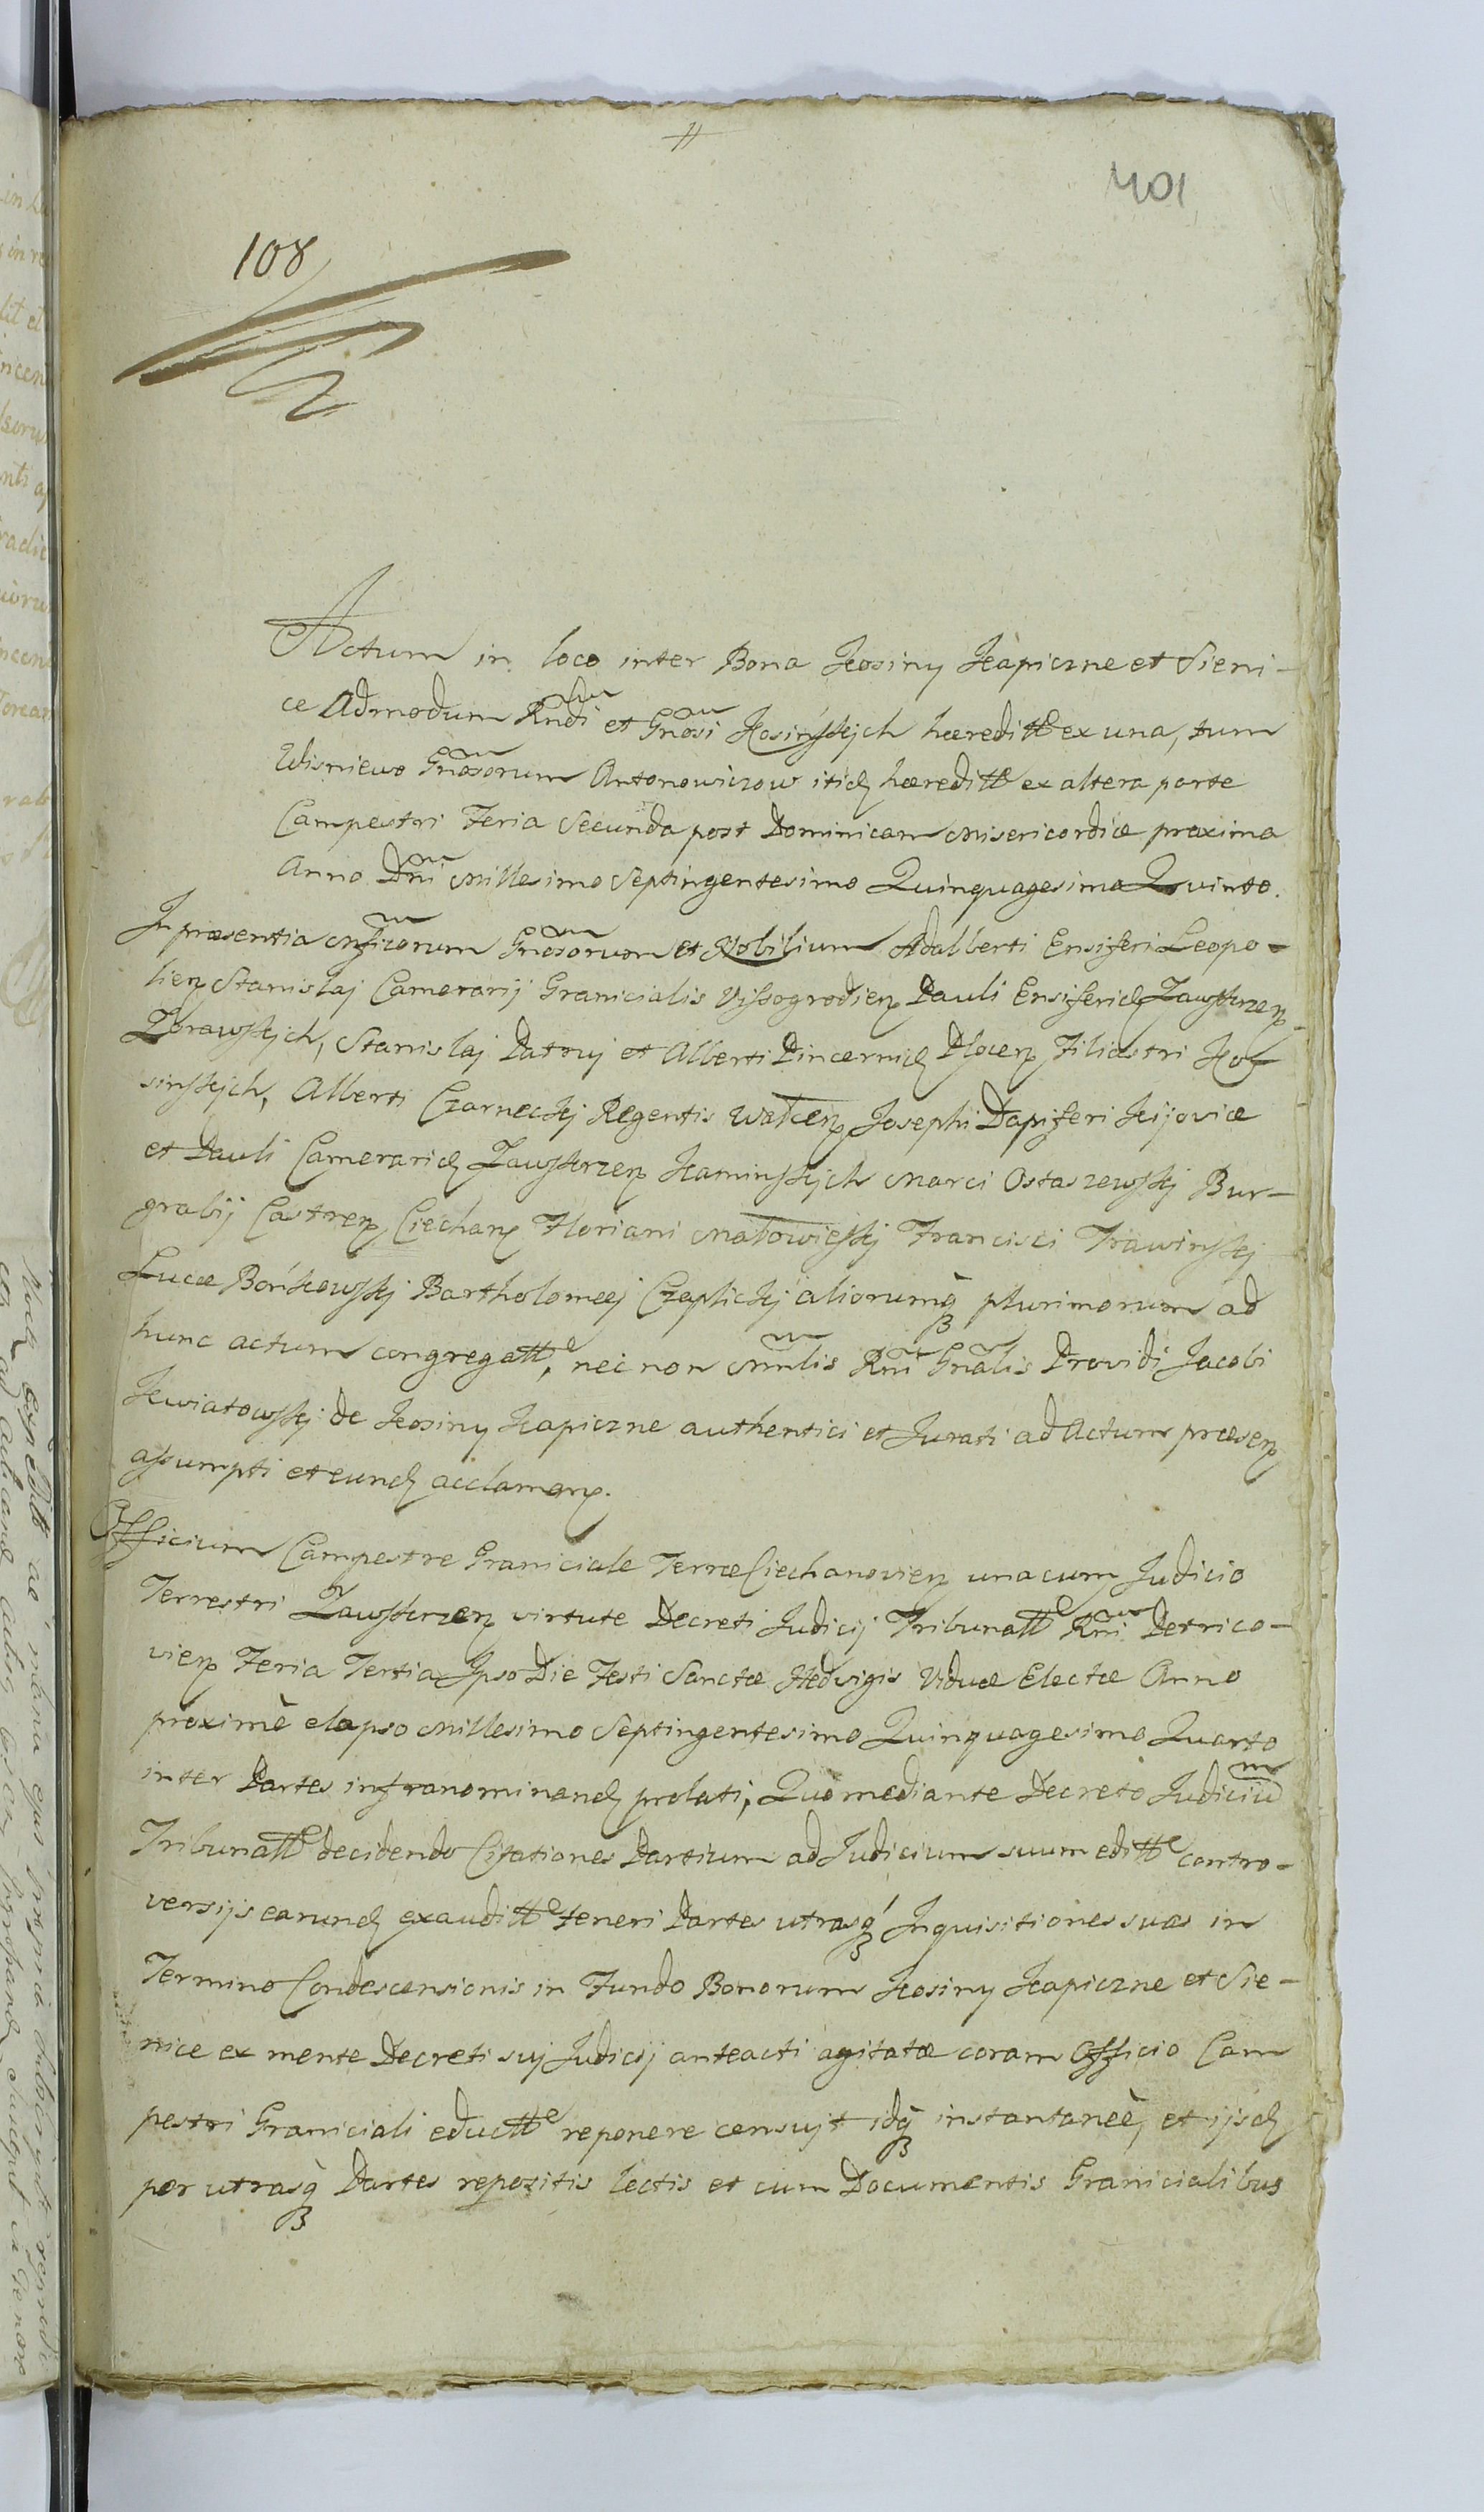 401
108
Actum in loco inter Bona Kosiny Kapiczne et Sieni-
ce Admodum Rndi et Gnosi Kosińskich hæreditt ex una, tum
Wisniewo Gnosorum Antonowiczow itid hæreditt ex altera parte
Campestri Feria Secunda post Dominicam Misericordiæ proxima
Anno Dni Millesimo Septingentesimo Quinquagesimo Quinto.
In præsentia Mficorum Gnosorum et Nobilium Adalberti Ensiferi Leopo-
lien Stanislaj Camerarij Granicialis Vissogrodien Pauli Ensiferid Zawskrzen
Zorawskich, Stanislaj Patruj et Alberti Pincernid Plocen Filiastri Ko-
sinskich, Alberti Czarneckij Regentis Walcen Josephi Dapiferi Kijoviæ
et Pauli Camerarid Zawskrzen Kaminskich Marci Ostaszewskj Bur-
grabij Castren Ciechan Floriani Malowieskj Francisci Trawinskj
Lucæ Bońkowskj Bartholomej Czaplickj aliorumq plurimorum ad
hunc actum congregatt, nec non Mnlis Rni Gnalis Providi Jacobi
Kwiatowskj de Kosiny Kapiczne authentici et Jurati ad Actum præsen
assumpti et eund acclaman.
Officium Campestre Graniciale Terræ Ciechanovien una cum Judicio
Terrestri Zawskrzen virtute Decreti Judicij Tribunatt Rni Petrico-
vien Feria Tertia Ipso Die Festi Sanctæ Hedvigis Viduæ Electæ Anno
proximè elapso Millesimo Septingentesimo Quinquagesimo Quarto
inter Partes infranominand prolati, Quo mediante Decreto Judiciu
Tribunatt decidendo Citationes Partium ad Judicium suum editt contro-
versijs earund exauditt teneri Partes utrasq Inquisitiones suas in
Termino Condescensionis in Fundo Bonorum Kosiny Kapiczne et Sie-
nice ex mente Decreti suj Judicij anteacti agitatæ coram Officio Cam
pestri Graniciali eductt reponere censujt idq instantaneè, et ijsd
per utrasq Partes repositis lectis et cum Documentis Granicialibus